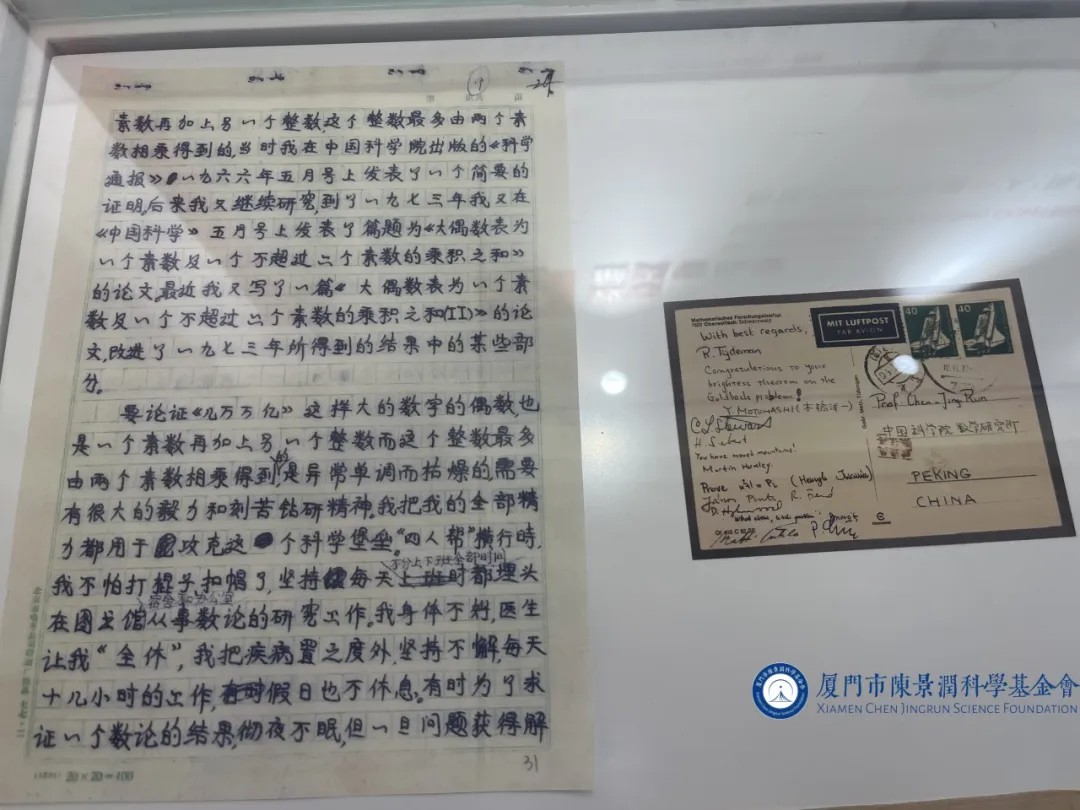 素数再加上另一个整数,这个整数最多由两个素
数相乘得到的,当时我在中国科学院出版的《科学
通报》一九六六年五月号上发表了一个简要的
证明,后来我又继续研究,到了一九七三年我又在
《中国科学》五月号上发表了篇题为《大偶数表为
一个素数及一个不超过二个素数的乘积之和》
的论文,最近我又写了一篇《大偶数表为一个素
数及一个不超过二个素数的乘积之和(II)》的论
文,改进了一九七三年所得到的结果中的某些部
分。
要论证《几万万亿》这样大的数字的偶数,也
是一个素数再加上另一个整数而这个整数最多
由两个素数相乘得到的是异常单调而枯燥的需要
有很大的毅力和刻苦钻研精神,我把我的全部精
力都用于攻克这个科学堡垒。"四人帮"横行時,
不分上下班全部时间
我不怕打棍子扣帽子,坚持每天上班时都埋头
宿舍和办公室
在图书馆从事数论的研究工作。我身体不好,医生
让我"全休",我把疾病置之度外,坚持不懈,每天
十几小时的工作,假日也不休息。有时为了求
证一个数论的结果,彻夜不眠,但一旦问题获得解
31
20×20=400
Mathematisches Forschungsinstitut
7620 Oberwolfach
With best regards,
R. Tijdeman
Congratulations to your
brightest theorem on the
Goldbach problem!
Y. MOTOHASHI
C L Stewart
You have moved mountains!
Martin Huxley
Prove
MIT LUFTPOST
PAR AVION
40
40
Prof. Chen-Jing Run
中国科学院数学研究所
PEKING
CHINA
厦門市陳景潤科學基金會
XIAMEN CHEN JINGRUN SCIENCE FOUNDATION